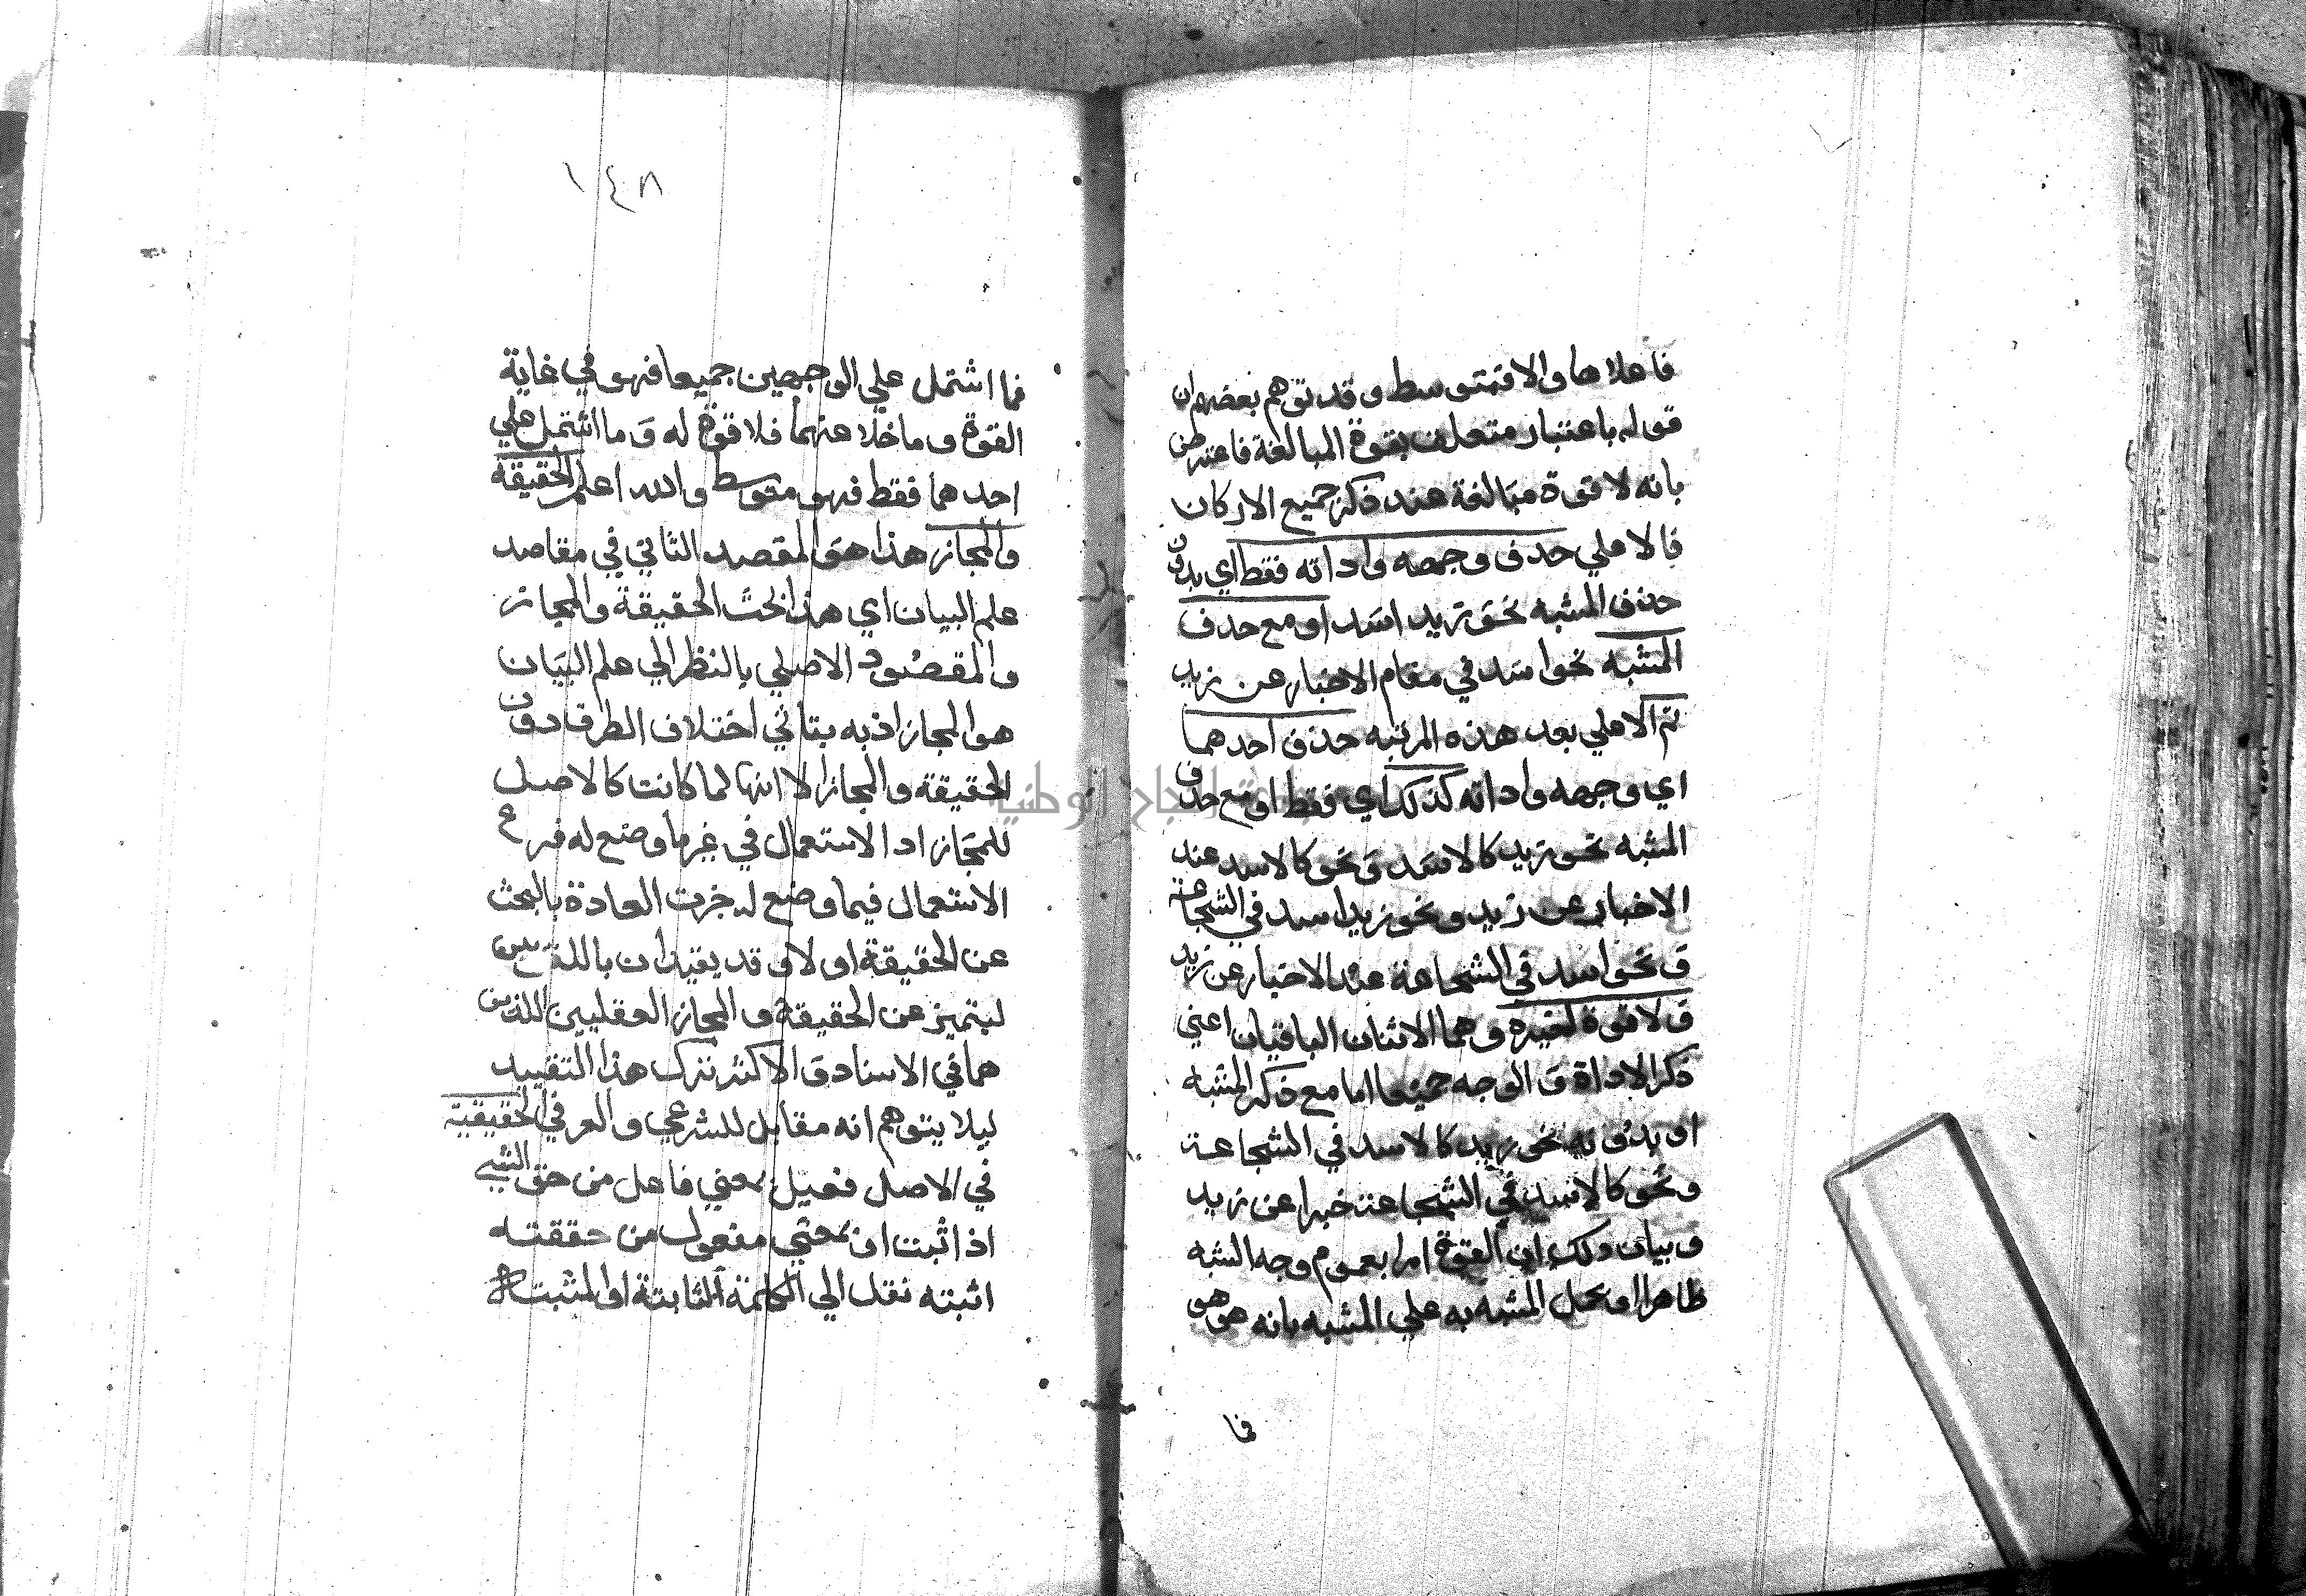 فاعلاها والا فمتوسط وقد توهم بعضهم ان
قوله باعتبار متعلق بقوة المبالغة فاعترض
بانه لا قوة مبالغة عند ذكر جميع الاركان
فالاعلي حذف وجهه واداته فقط اي بدون
حذف المشبه نحو زيد اسد او مع حذف
المشبه نحو اسد في مقام الاخبار عن زيد
ثم الاعلي بعد هذه المرتبه حذف احدهما
اي وجهه واداته كذلك اي فقط او مع حذف
المشبه نحو زيد كالاسد ونحو كالاسد عند
الاخبار عن زيد ونحو زيد اسد في الشجاعة
ونحو اسد في الشجاعة عند الاخبار عن زيد
ولا قوة لغيره وهما الاثنان الباقيان اعني
ذكر الاداة والوجه جميعا اما مع ذكر المشبه
او بدونه نحو زيد كالاسد في الشجاعة
ونحو كالاسد في الشجاعة خبرا عن زيد
وبيان ذلك ان القوة اما بعموم وجه الشبه
ظاهرا او بحمل المشبه به علي المشبه بانه هو هو
فما
١٤٨
فما اشتمل علي الوجهين جميعا فهو في غاية
القوة وما خلا عنهما فلا قوة له وما اشتمل علي
احدهما فقط فهو متوسط والله اعلم الحقيقة
والمجاز هذا هو المقصد الثاني في مقاصد
علم البيان اي هذا بحث الحقيقة والمجاز
والمقصود الاصلي بالنظر الي علم البيان
هو المجاز اذ به يتاتي اختلاف الطرق دون
الحقيقة والمجاز الا انها لما كانت كالاصل
للمجاز اذ الاستعمال في غير ما وضع له فرع
الاستعمال فيما وضع له جرت العادة بالبحث
عن الحقيقة اولا وقد يقيدان باللغويين
ليتميز عن الحقيقة والمجاز العقليين اللذين
هما في الاسناد والاكثر ترك هذا التقييد
ليلا يتوهم انه مقابل للشرعي والعرفي الحقيقية
في الاصل فعيل بمعني فاعل من حق الشيء
اذا ثبت او بمعني مفعول من حققته
اثبته نقل الي الكلمة الثابتة او المثبت